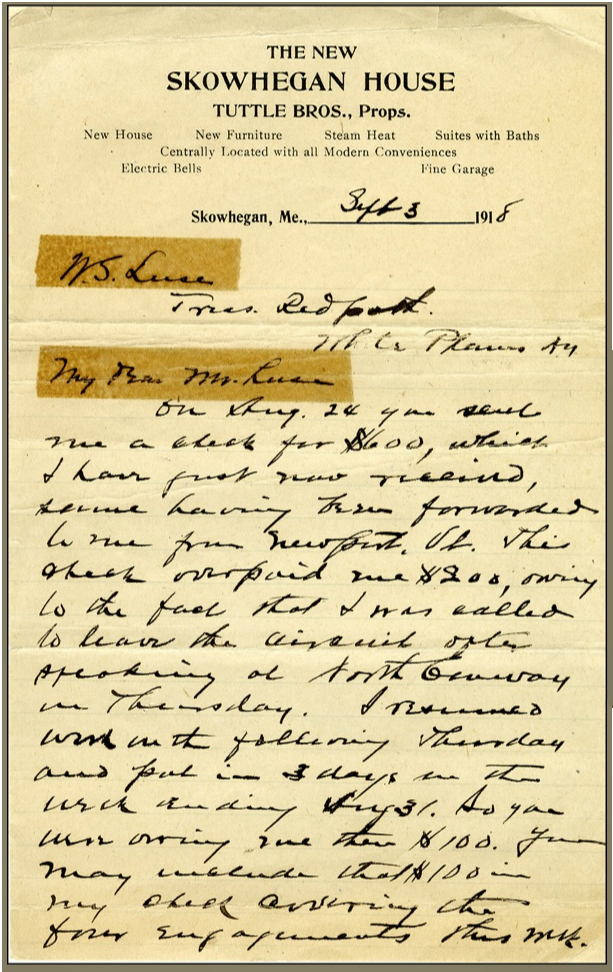 THE NEW
SKOWHEGAN HOUSE
TUTTLE BROS., Props.
New House New Furniture Steam Heat Suites with Baths
Centrally Located with all Modern Conveniences
Electric Bells Fine Garage
Skowhegan, Me., Sept 3 1918
W. S. Luse
Treas. Redpath.
White Plains NY
My Dear Mr. Luse
On Aug. 24 you send
me a check for $600, which
I have just now received,
same having been forwarded
to me from Newport, Vt. This
check overpaid me $200, owing
to the fact that I was called
to leave the circuit after
speaking at North Conway
on Thursday. I resumed
work on the following Thursday
and put in 3 days in the
week ending Aug 31. So you
were owing me then $100. You
may include that $100 in
my check covering the
four engagements this wk.